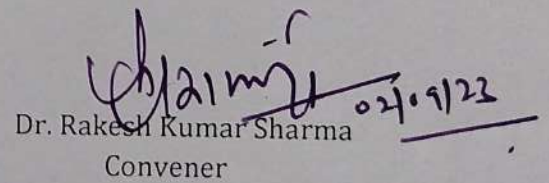 02/09/23
Dr. Rakesh Kumar Sharma
Convener